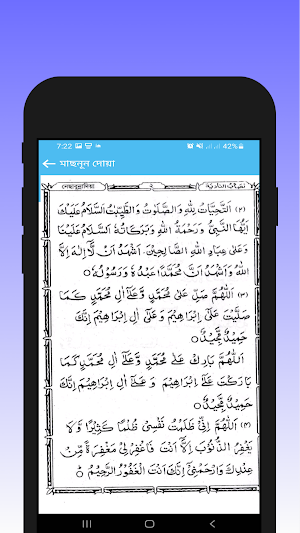 7:22 42%
মাছনূন দোয়া
(٢) اَلتَّحِيَّاتُ لِلّٰهِ وَالصَّلَوٰتُ وَالطَّيِّبٰتُ اَلسَّلَامُ عَلَيْكَ
اَيُّهَا النَّبِىُّ وَرَحْمَةُ اللّٰهِ وَبَرَكَاتُهٗ اَلسَّلَامُ عَلَيْنَا
وَعَلٰى عِبَادِ اللّٰهِ الصَّالِحِيْنَ اَشْهَدُ اَنْ لَّا اِلٰهَ اِلَّا
اللّٰهُ وَاَشْهَدُ اَنَّ مُحَمَّدًا عَبْدُهٗ وَرَسُوْلُهٗ ○
(٣) اَللّٰهُمَّ صَلِّ عَلٰى مُحَمَّدٍ وَّعَلٰٓى اٰلِ مُحَمَّدٍ كَمَا
صَلَّيْتَ عَلٰٓى اِبْرَاهِيْمَ وَعَلٰٓى اٰلِ اِبْرَاهِيْمَ اِنَّكَ
حَمِيْدٌ مَّجِيْدٌ ○
اَللّٰهُمَّ بَارِكْ عَلٰى مُحَمَّدٍ وَّعَلٰٓى اٰلِ مُحَمَّدٍ كَمَا
بَارَكْتَ عَلٰٓى اِبْرَاهِيْمَ وَ عَلٰٓى اٰلِ اِبْرَاهِيْمَ اِنَّكَ
حَمِيْدٌ مَّجِيْدٌ ○
(٤) اَللّٰهُمَّ اِنِّىْ ظَلَمْتُ نَفْسِىْ ظُلْمًا كَثِيْرًا وَّلَا
يَغْفِرُ الذُّنُوْبَ اِلَّا اَنْتَ فَاغْفِرْ لِىْ مَغْفِرَةً مِّنْ
عِنْدِكَ وَارْحَمْنِىْ اِنَّكَ اَنْتَ الْغَفُوْرُ الرَّحِيْمُ ○